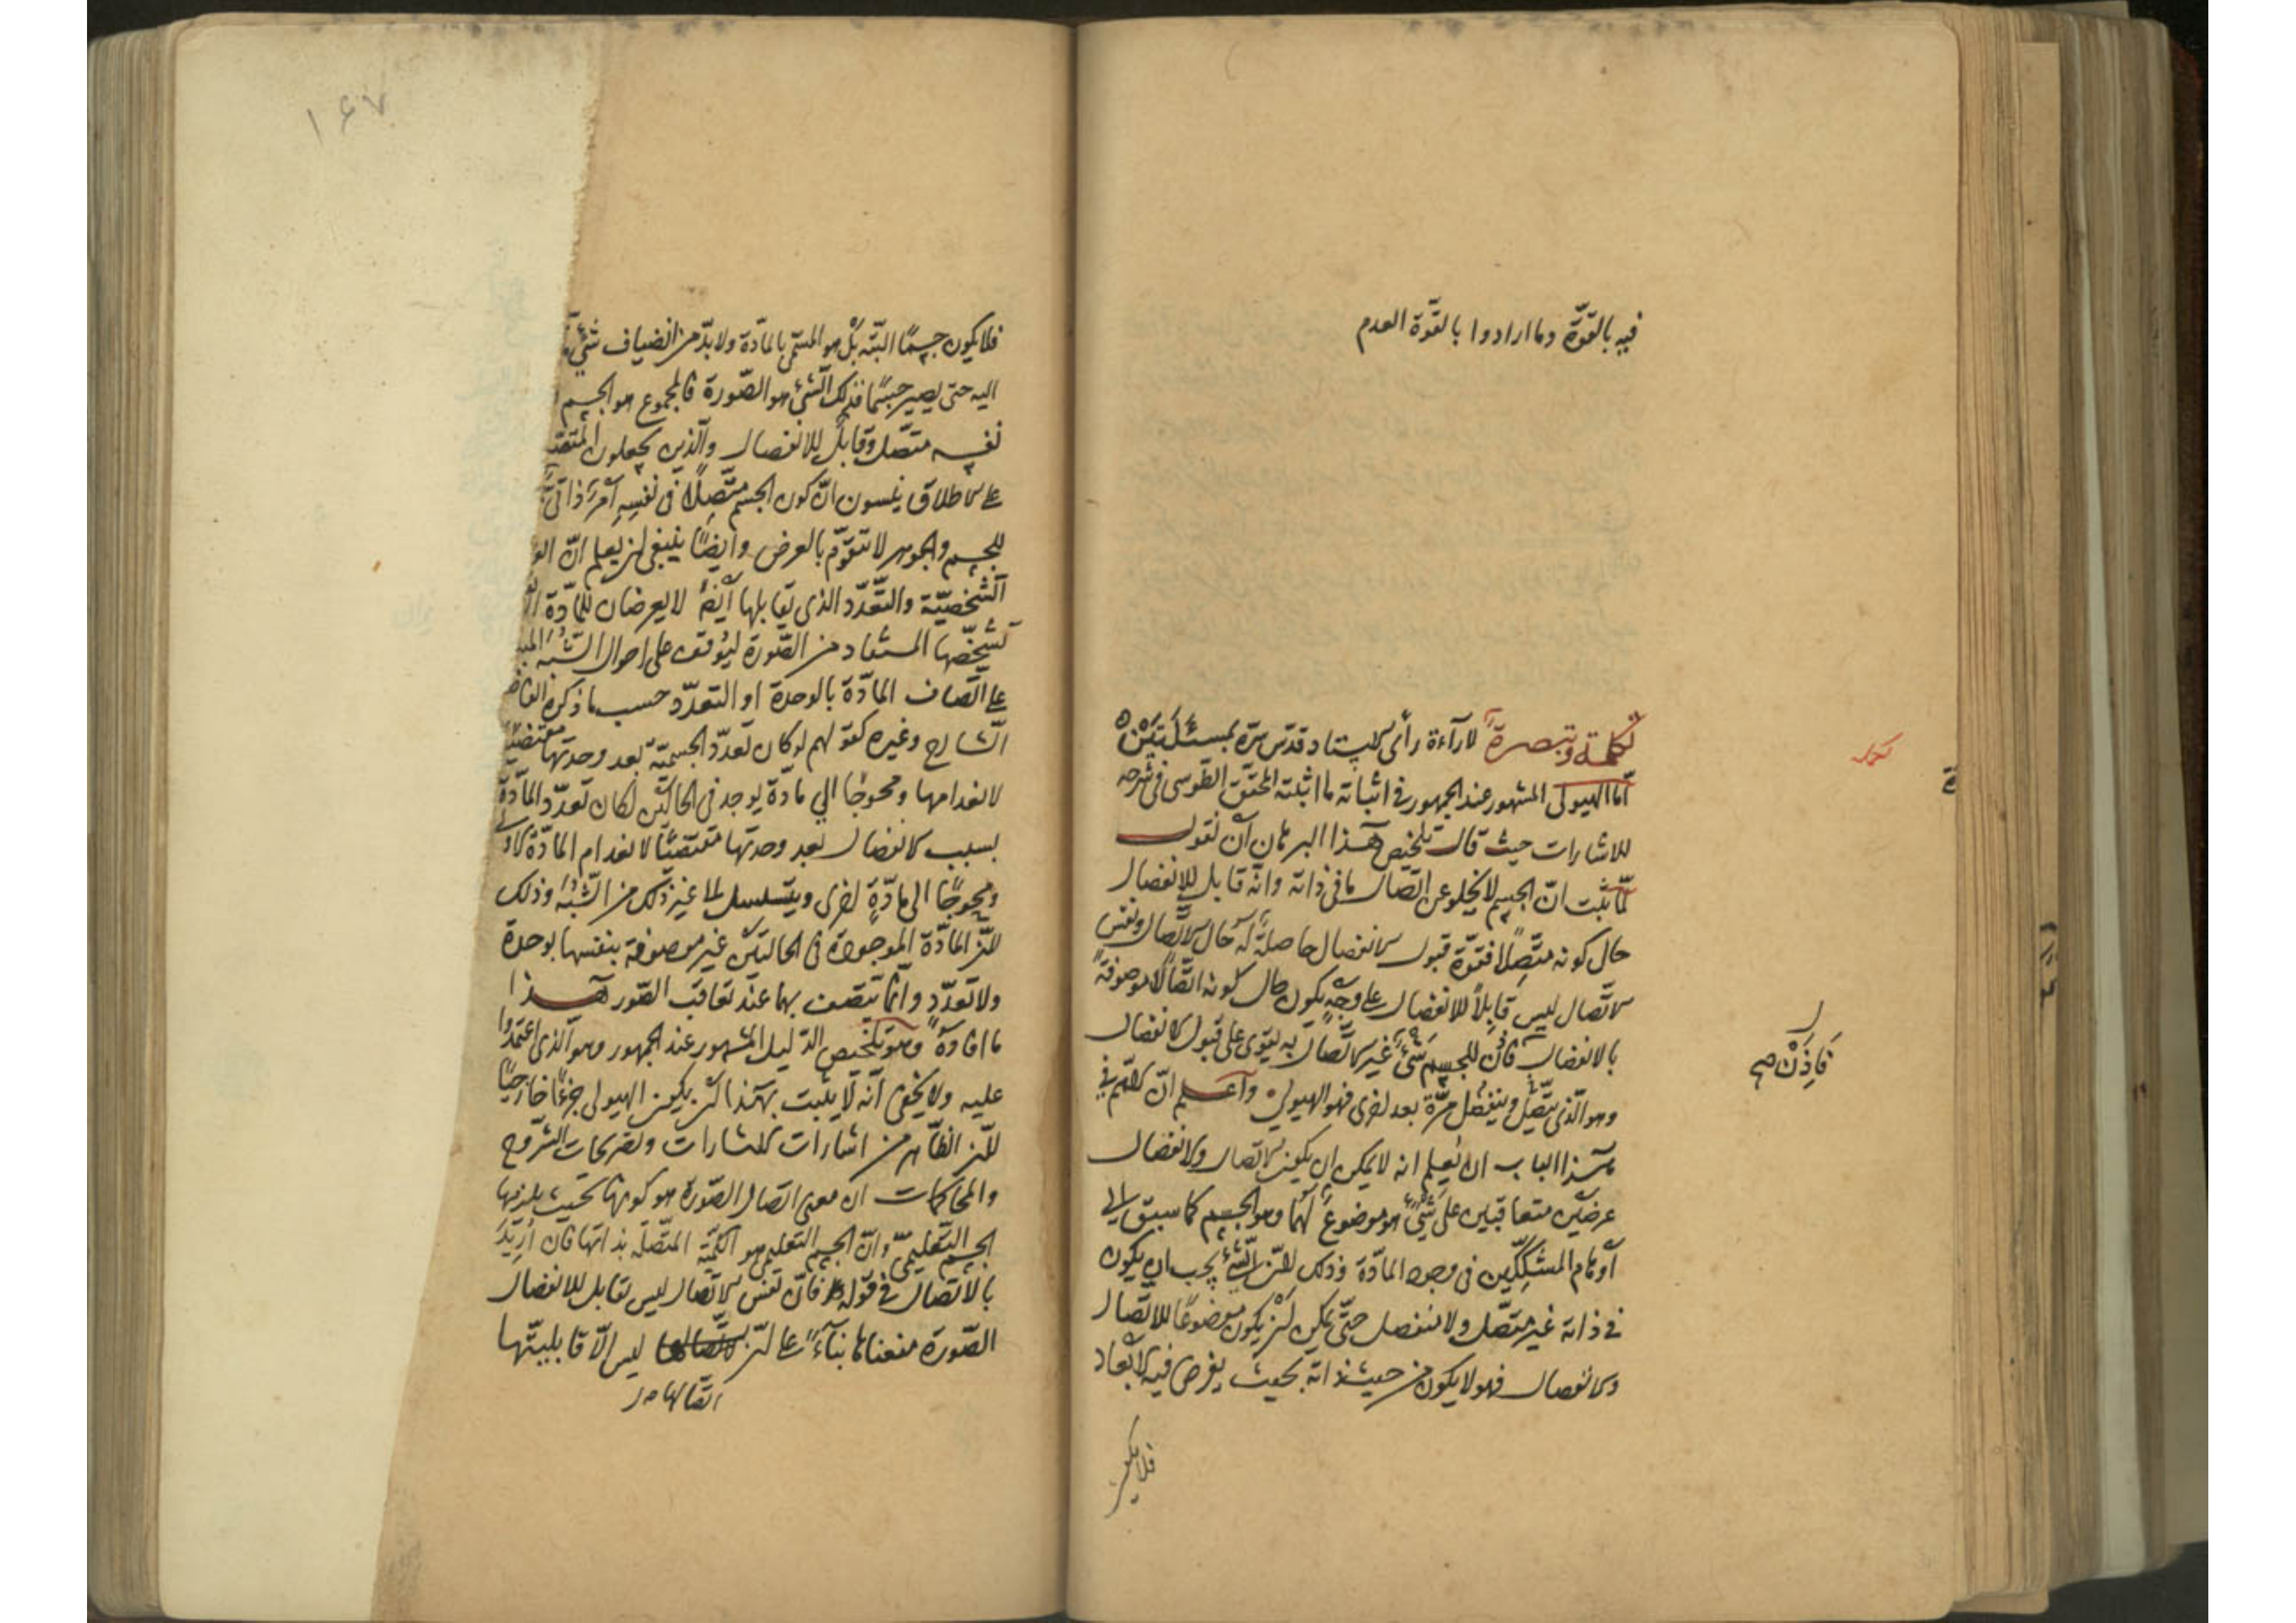 فيه بالقوّة وما ارادوا بالقوّة العدم
تكملة وتبصرة لارآءة رأى الاستاد قدّس سرّه بمسئلتين
امّا الهيولى المشهور عند الجمهور فى اثباته ما اثبته المحقق الطّوسى فى شرحه
للاشارات حيث قال تلخيص هذا البرهان أن نقول
لمّا ثبت انّ الجسم لا يخلو عن اتّصال ما فى ذاته وانّه قابل للانفصال
حال كونه متّصلًا فقوّة قبول الانفصال حاصلة له حال الاتّصال ونفس
الاتّصال ليس قابلًا للانفصال على وجه يكون حال كونه اتّصالًا موصوفة
بالانفصال فاذن للجسم شىء غير الاتّصال به يقوى على قبول الانفصال
وهو الّذى يتّصل وينفصل مرّة بعد اخرى فهو الهيولى واعلم انّ الاهم فى
هذا الباب ان يعلم انه لا يمكن ان يكون الاتصال والانفصال
عرضين متعاقبين على شىء هو موضوع لهما وهو الجسم كما سبق الى
أوهام المشكّكين فى وجود المادّة وذلك لانّ الشّىء يجب ان يكون
فى ذاته غير متّصل ولا منفصل حتّى يمكن ان يكون موضوعًا للاتّصال
والانفصال فهو لا يكون من حيث ذاته بحيث يفرض فيه الابعاد
فلا يكون
تكملة
فَاذِنْ صح
١٤٧
فلا يكون جسمًا البتّه بل هو المسمّى بالمادّة ولا بدّ من انضياف شىء
اليه حتى يصير جسمًا فذلك الشّىء هو الصّورة فالمجموع هو الجسم
نفسه متّصل وقابل للانفصال والّذين يجعلون
على الاطلاق ينسون انّ كون الجسم متّصلًا فى نفسه أمر ذاتىّ
للجسم والجوهر لا يتقوّم بالعرض وأيضًا ينبغى ان يعلم انّ
الشّخصيّة والتّعدّد الذى يقابلها أيضًا لا يعرضان للمادّة
لتشخّصها المستفاد من الصّورة ليوقف على احوال الشّبه
على اتّصاف المادّة بالوحدة او التعدّد حسب ما ذكره الفاضل
الشّارح وغيره كقولهم لو كان تعدّد الجسميّة بعد وحدتها مقتضيًا
لانعدامها ومحوجًا الى مادة يوجد فى الحالتين لكان تعدّد المادّة
بسبب الانفصال بعد وحدتها مقتضيًا لانعدام المادّة الاولى
ومحوجًا الى مادّة اخرى ويتسلسل الى غير ذلك من الشّبه وذلك
لانّ المادّة الموجودة فى الحالتين غير موصوفة بنفسها بوحدة
ولا تعدّد وانّما يتصف بهما عند تعاقب الصّور هذا
ما افاده وهو تلخيص الدّليل المشهور عند الجمهور وهو الّذى اعتمدوا
عليه ولا يخفى انّه لا يثبت بهذا ان يكون الهيولى جزءًا خارجيًّا
لانّ الظّاهر من اشارات الاشارات وتصريحات الشّروح
والمحاكمات ان معنى اتصال الصّورة هو كونها بحيث يلزمها
الجسم التّعليمىّ وانّ الجسم التعليمى هو الكميّة المتّصلة بذاتها فان اريد
بالاتصال فى قوله فانّ نفس الاتّصال ليس بقابل للانفصال
الصّورة منعناها بنآءً على انّ ليس الّا قابليّتها
اتّصالها